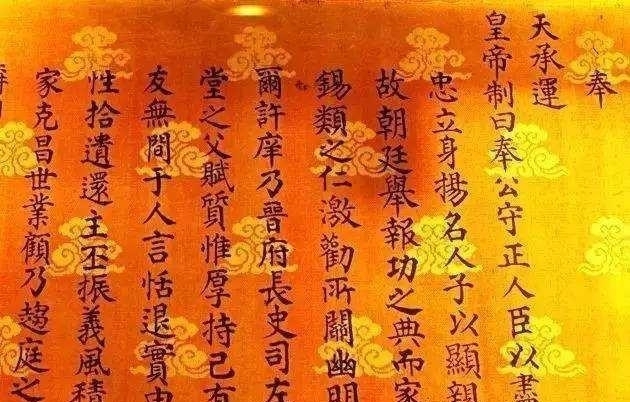 奉
天承運
皇帝制曰奉公守正人臣以盡
忠立身揚名人子以顯親
故朝廷舉報功之典而家
錫類之仁激勸所關幽明
爾許庠乃晉府長史司左
堂之父賦質惟厚持己有
友無間于人言恬退實由
性拾遺還主丕振義風積
家克昌世業顧乃趨庭之